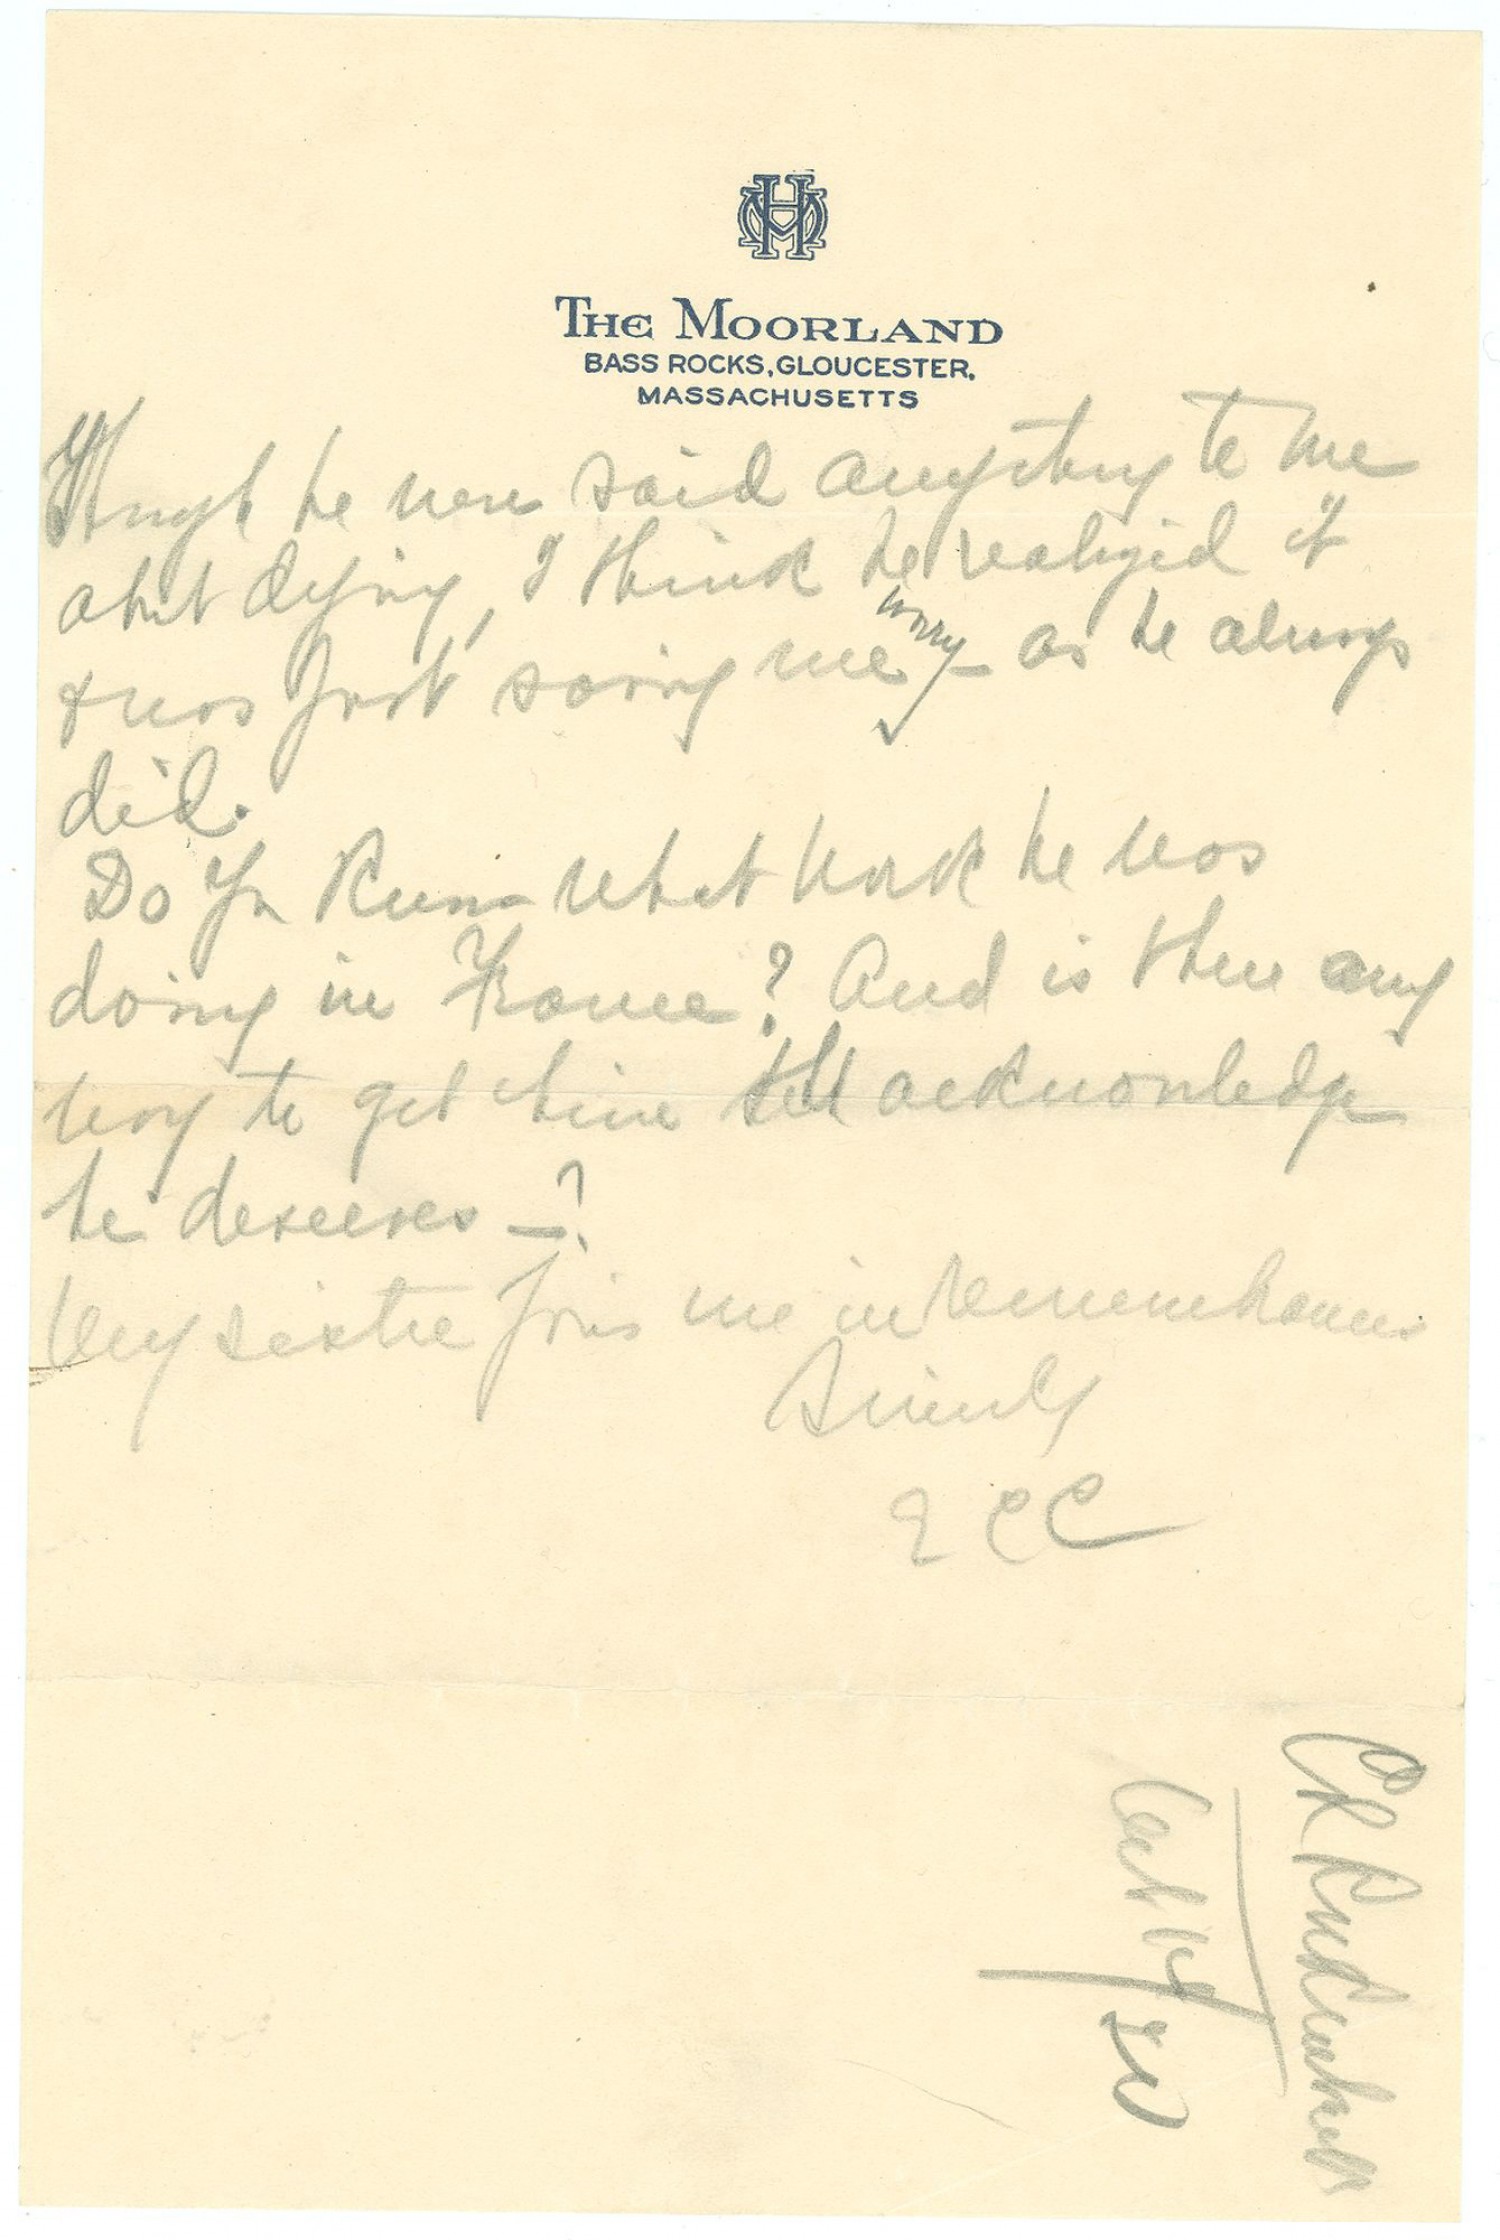 THE MOORLAND
BASS ROCKS, GLOUCESTER,
MASSACHUSETTS
Though he never said anything to me
about dying, I think he realized it
& was just saving me worry – as he always
did.
Do you know what work he was
doing in France? And is there any
way to get him acknowledge
he deserves –?
My sister joins me in remembrances
Sincerely
E C C
C R